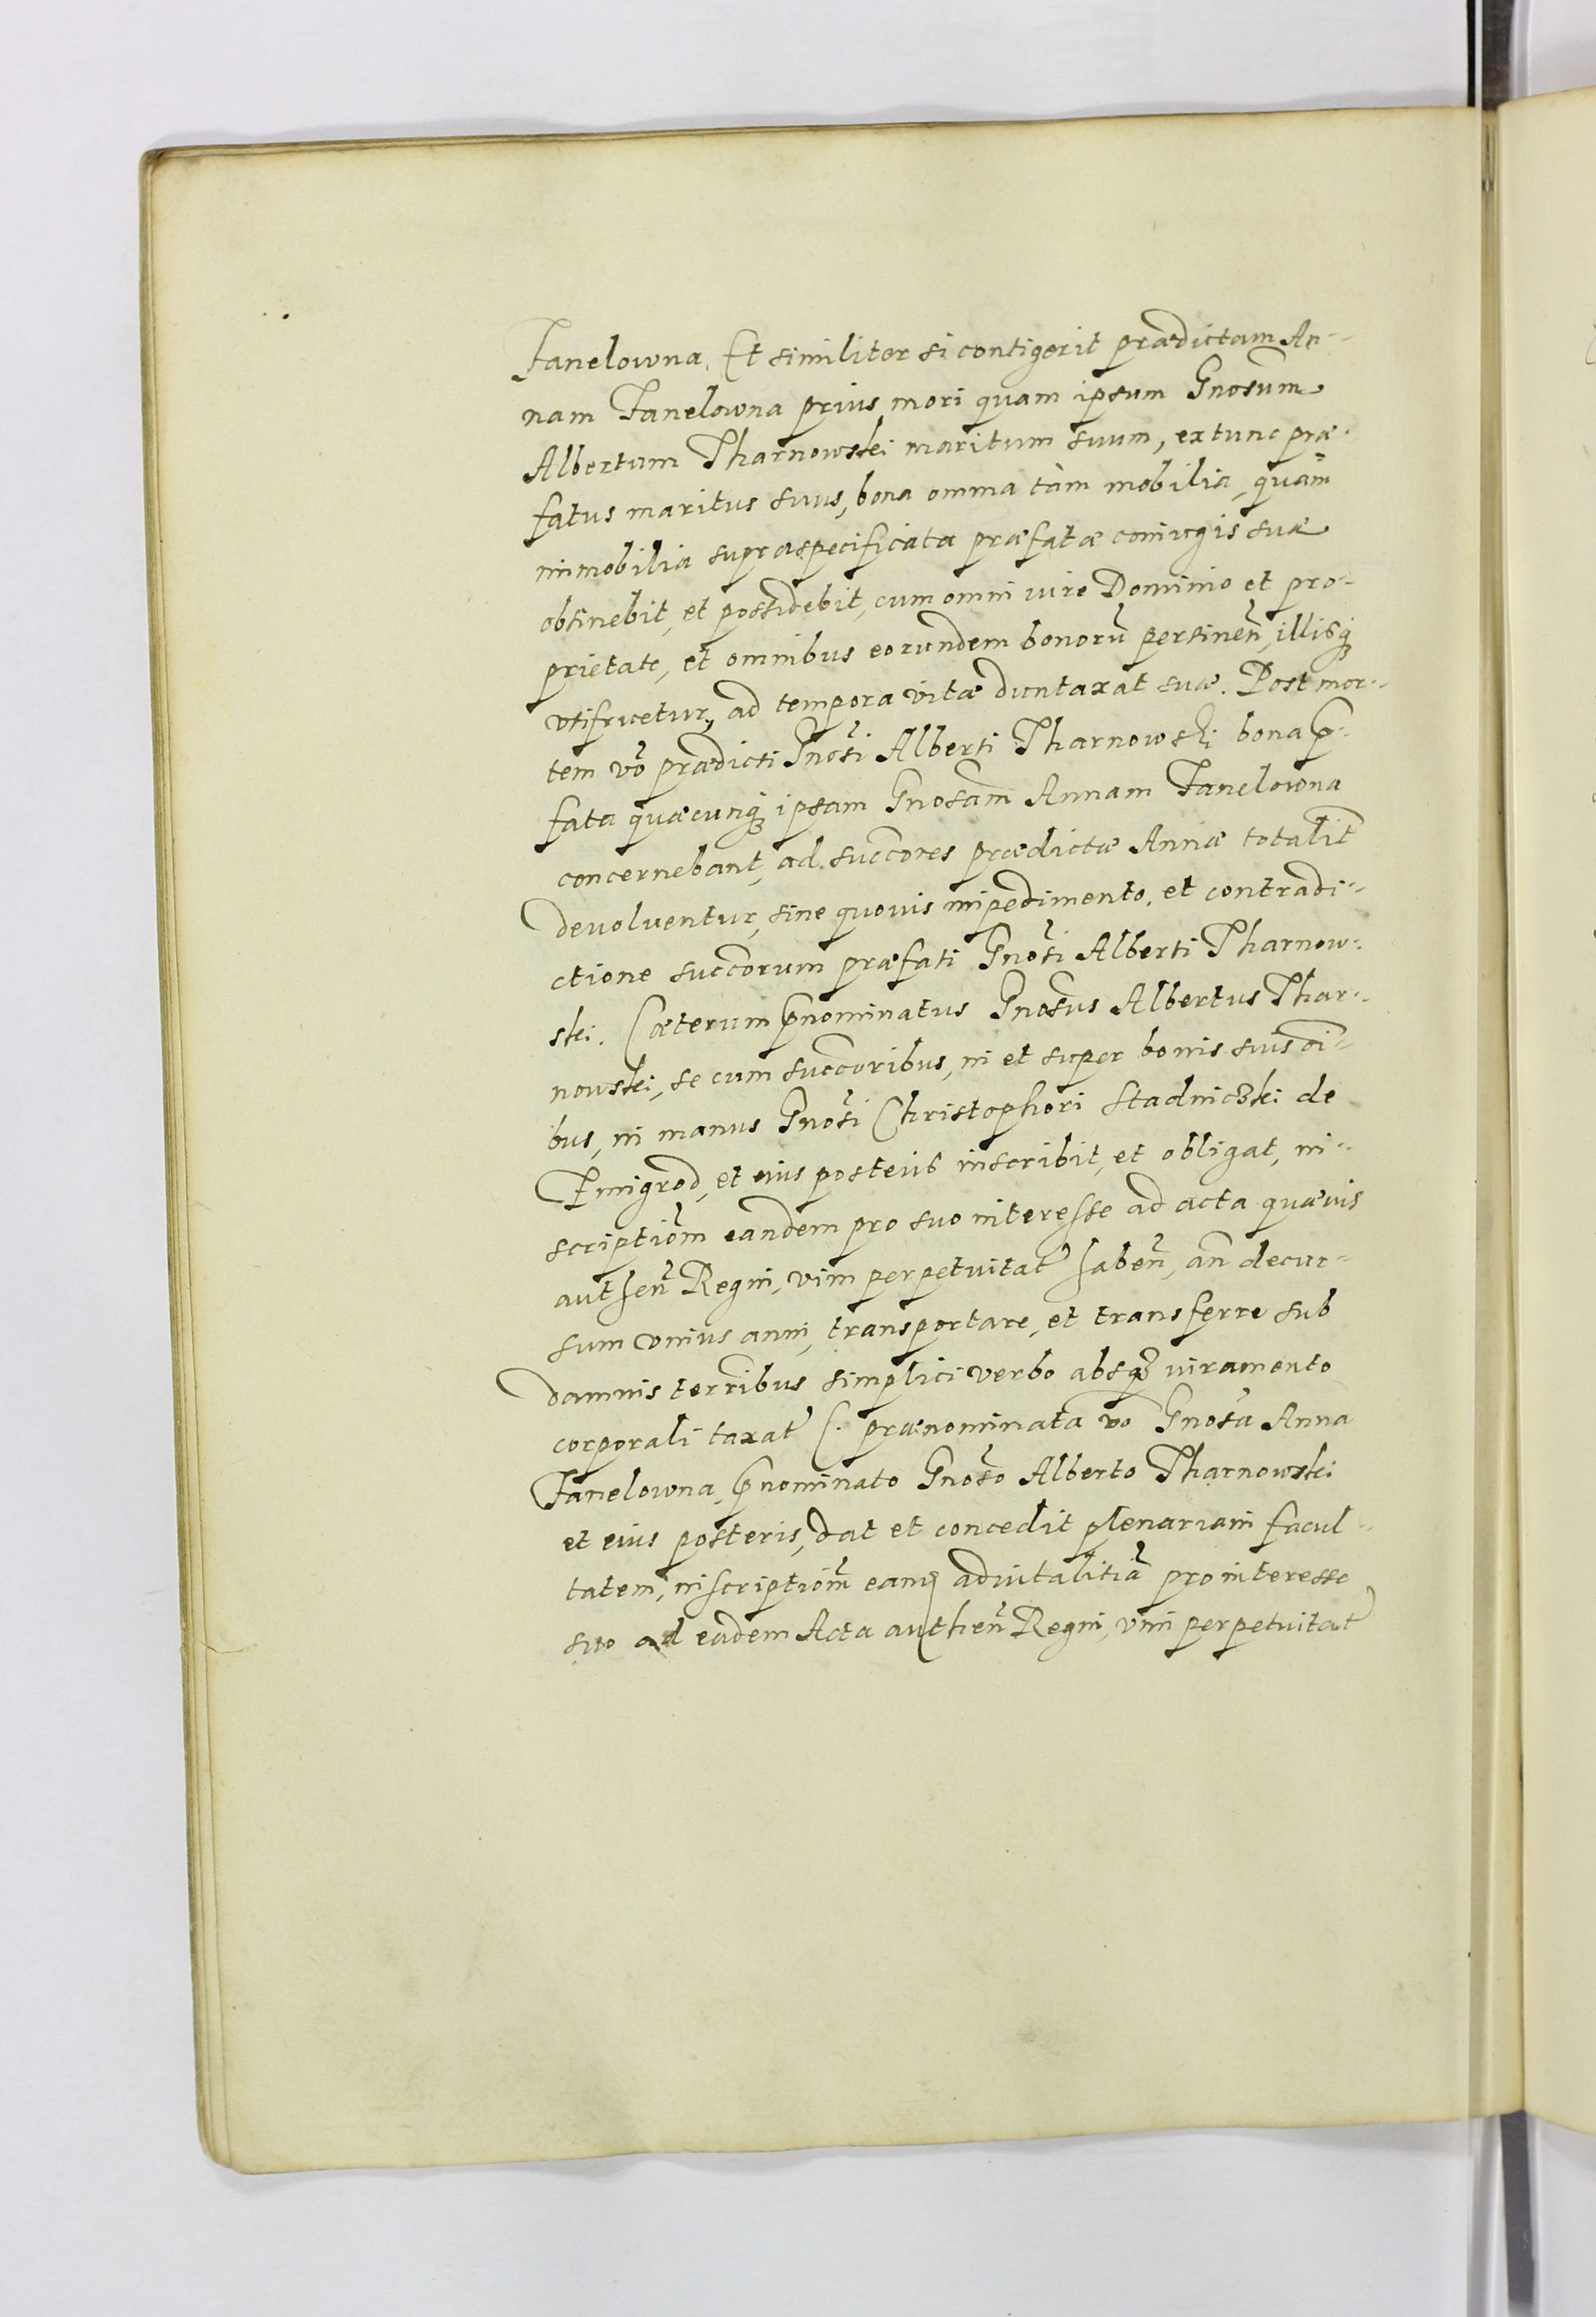 Janelowna. Et similiter si contigerit prædictam An-
nam Janelowna prius mori quam ipsum Gnosum
Albertum Tharnowski maritum suum, extunc præ-
fatus maritus suus, bona omnia tàm mobilia, quàm
immobilia supraspecificata præfatæ coniugis suæ
obtinebit, et possidebit, cum omni iure Dominio et pro-
prietate, et omnibus eorundem bonorũ pertineñ, illisq;
vtifruetur, ad tempora vitæ duntaxat suæ. Post mor-
tem võ prædicti Gnosi Alberti Tharnowski bona p̃-
fata quæcunq; ipsam Gnosam Annam Janelowna
concernebant, ad succores prædictæ Annæ totalit̃
deuoluentur, sine quouis impedimento, et contradi-
ctione succorum præfati Gnosi Alberti Tharnow-
ski. Cæterum p̃nominatus Gnosus Albertus Thar-
nowski, se cum succoribus, in et super bonis suis oĩ-
bus, in manus Gnosi Christophori Stadniczki de
Zmigrod, et eius posteris inscribit, et obligat, in-
scriptiõm eandem pro suo interesse ad acta quæuis
autheñ Regni, vim perpetuitat̃ habeñ, añ decur-
sum vnius anni, transportare, et transferre sub
damnis terribus simplici verbo absq; iuramento
corporali taxat̃ (. prænominata võ Gnosa Anna
Janelowna p̃nominato Gnoso Alberto Tharnowski
et eius posteris, dat et concedit plenariam facul-
tatem, inscriptiõm eam aduitalitiã pro interesse
suo ad eadem Acta autheñ Regni, vim perpetuitat̃